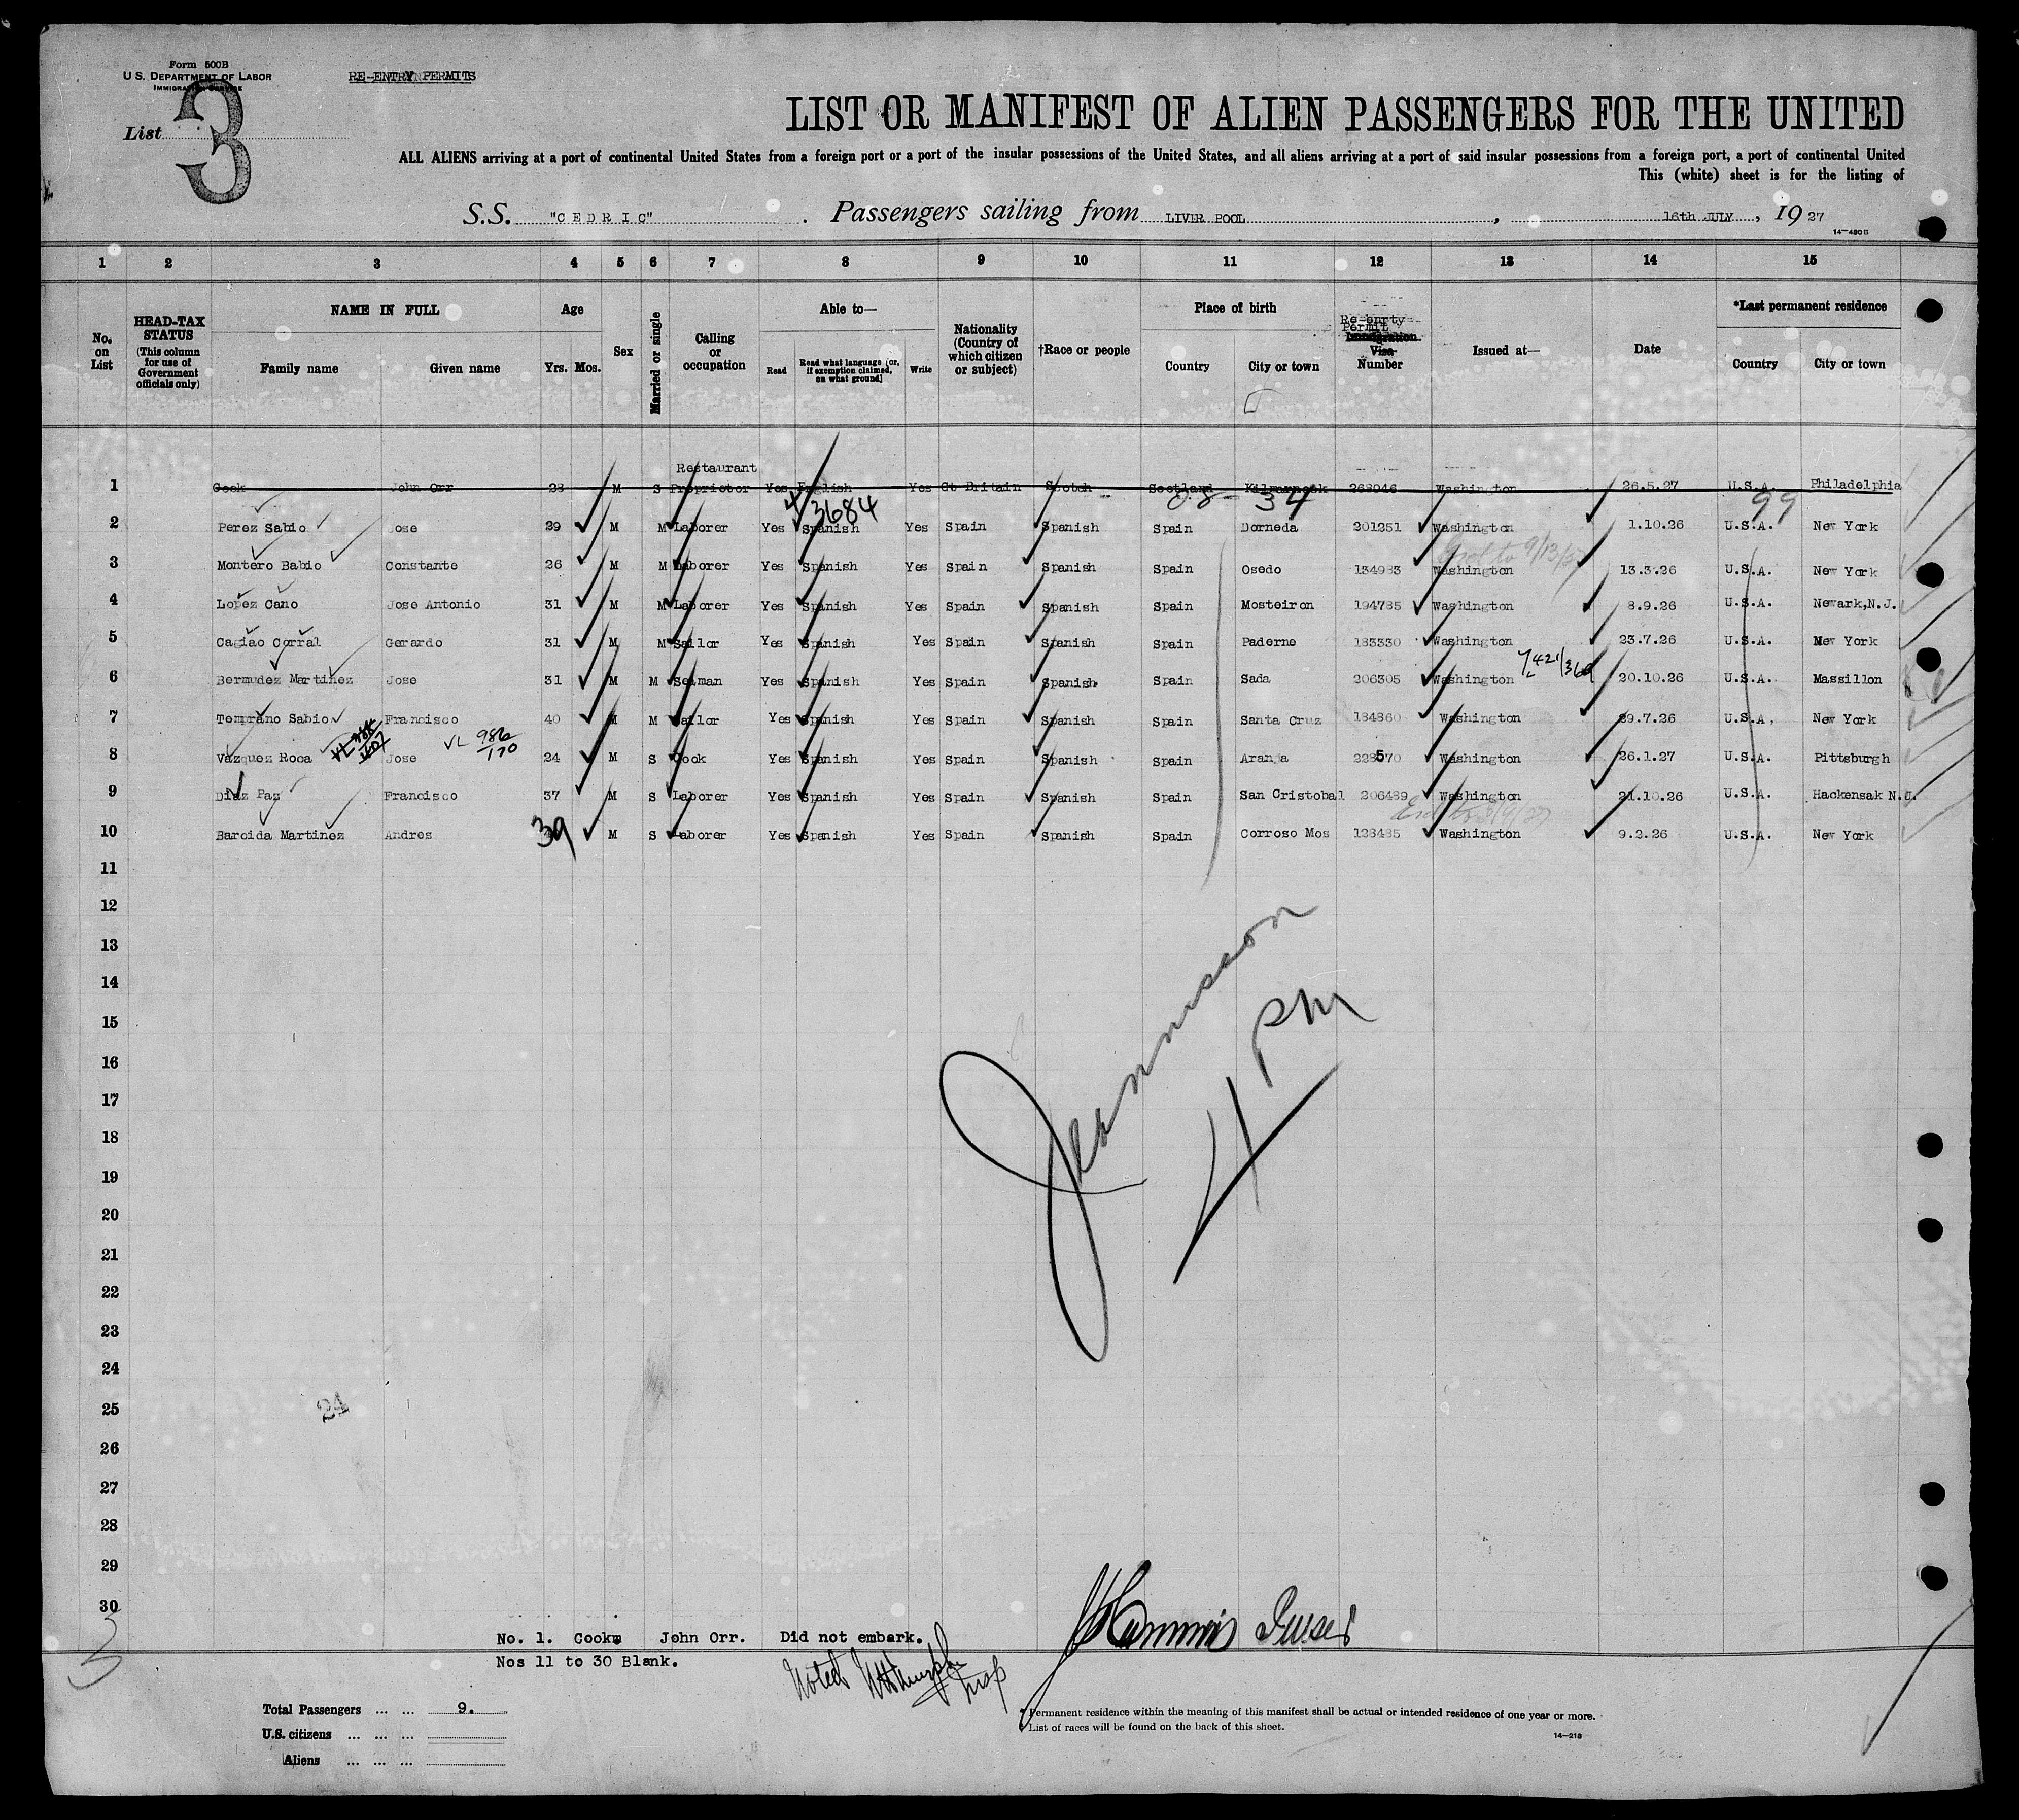 Form 500B
U.S. DEPARTMENT OF LABOR
IMMIGRATION SERVICE
RE-ENTRY PERMITS
List 3
LIST OR MANIFEST OF ALIEN PASSENGERS FOR THE UNITED
ALL ALIENS arriving at a port of continental United States from a foreign port or a port of the insular possessions of the United States, and all aliens arriving at a port of said insular possessions from a foreign port, a port of continental United
This (white) sheet is for the listing of
S.S. "CEDRIC" . Passengers sailing from LIVERPOOL , 16th JULY , 19 27
14-480B
1 2 3 4 5 6 7 8 9 10 11 12 13 14 15
No. on List
HEAD-TAX STATUS (This column for use of Government officials only)
NAME IN FULL
Family name Given name
Age
Yrs. Mos.
Sex
Married or single
Calling or occupation
Able to—
Read Read what language [or, if exemption claimed, on what ground] Write
Nationality (Country of which citizen or subject)
†Race or people
Place of birth
Country City or town
Re-enrty Permit Immigration Visa Number
Issued at—
Date
*Last permanent residence
Country City or town
Restaurant
1 Cook John Orr 28 M S Proprietor Yes English Yes Gt Britain Scotch Scotland Kilmarnock 268046 Washington 26.5.27 U.S.A. Philadelphia
3684 34 99
2 Perez Sabio Jose 39 M M Laborer Yes Spanish Yes Spain Spanish Spain Dorneda 201251 Washington 1.10.26 U.S.A. New York
9/13/27
3 Montero Babio Constante 26 M M Laborer Yes Spanish Yes Spain Spanish Spain Osedo 134983 Washington 13.3.26 U.S.A. New York
4 Lopez Cano Jose Antonio 31 M M Laborer Yes Spanish Yes Spain Spanish Spain Mosteiron 194785 Washington 8.9.26 U.S.A. Newark,N.J.
5 Cagiao Corral Gerardo 31 M M Sailor Yes Spanish Yes Spain Spanish Spain Paderne 183330 Washington 23.7.26 U.S.A. New York
6 Bermudez Martinez Jose 31 M M Seaman Yes Spanish Yes Spain Spanish Spain Sada 206305 Washington 20.10.26 U.S.A. Massillon
7 Temprano Sabio Francisco 40 M M Sailor Yes Spanish Yes Spain Spanish Spain Santa Cruz 184860 Washington 29.7.26 U.S.A. New York
VL 986/170
8 Vazquez Roca Jose 24 M S Cook Yes Spanish Yes Spain Spanish Spain Aranja 228570 Washington 26.1.27 U.S.A. Pittsburgh
9 Diaz Paz Francisco 37 M S Laborer Yes Spanish Yes Spain Spanish Spain San Cristobal 206489 Washington 21.10.26 U.S.A. Hackensak N.J.
10 Barcida Martinez Andres 39 M S Laborer Yes Spanish Yes Spain Spanish Spain Corroso Mos 128485 Washington 9.2.26 U.S.A. New York
11
12
13
14
15
16
17
18
19
20
21
22
23
24
25
26
27
28
29
30
4 PM
24
3
No. 1. Cook John Orr. Did not embark.
Nos 11 to 30 Blank.
Noted
Insp
Total Passengers ... ... 9.
U.S. citizens ... ... ...
Aliens ... ... ...
* Permanent residence within the meaning of this manifest shall be actual or intended residence of one year or more.
† List of races will be found on the back of this sheet.
14-213